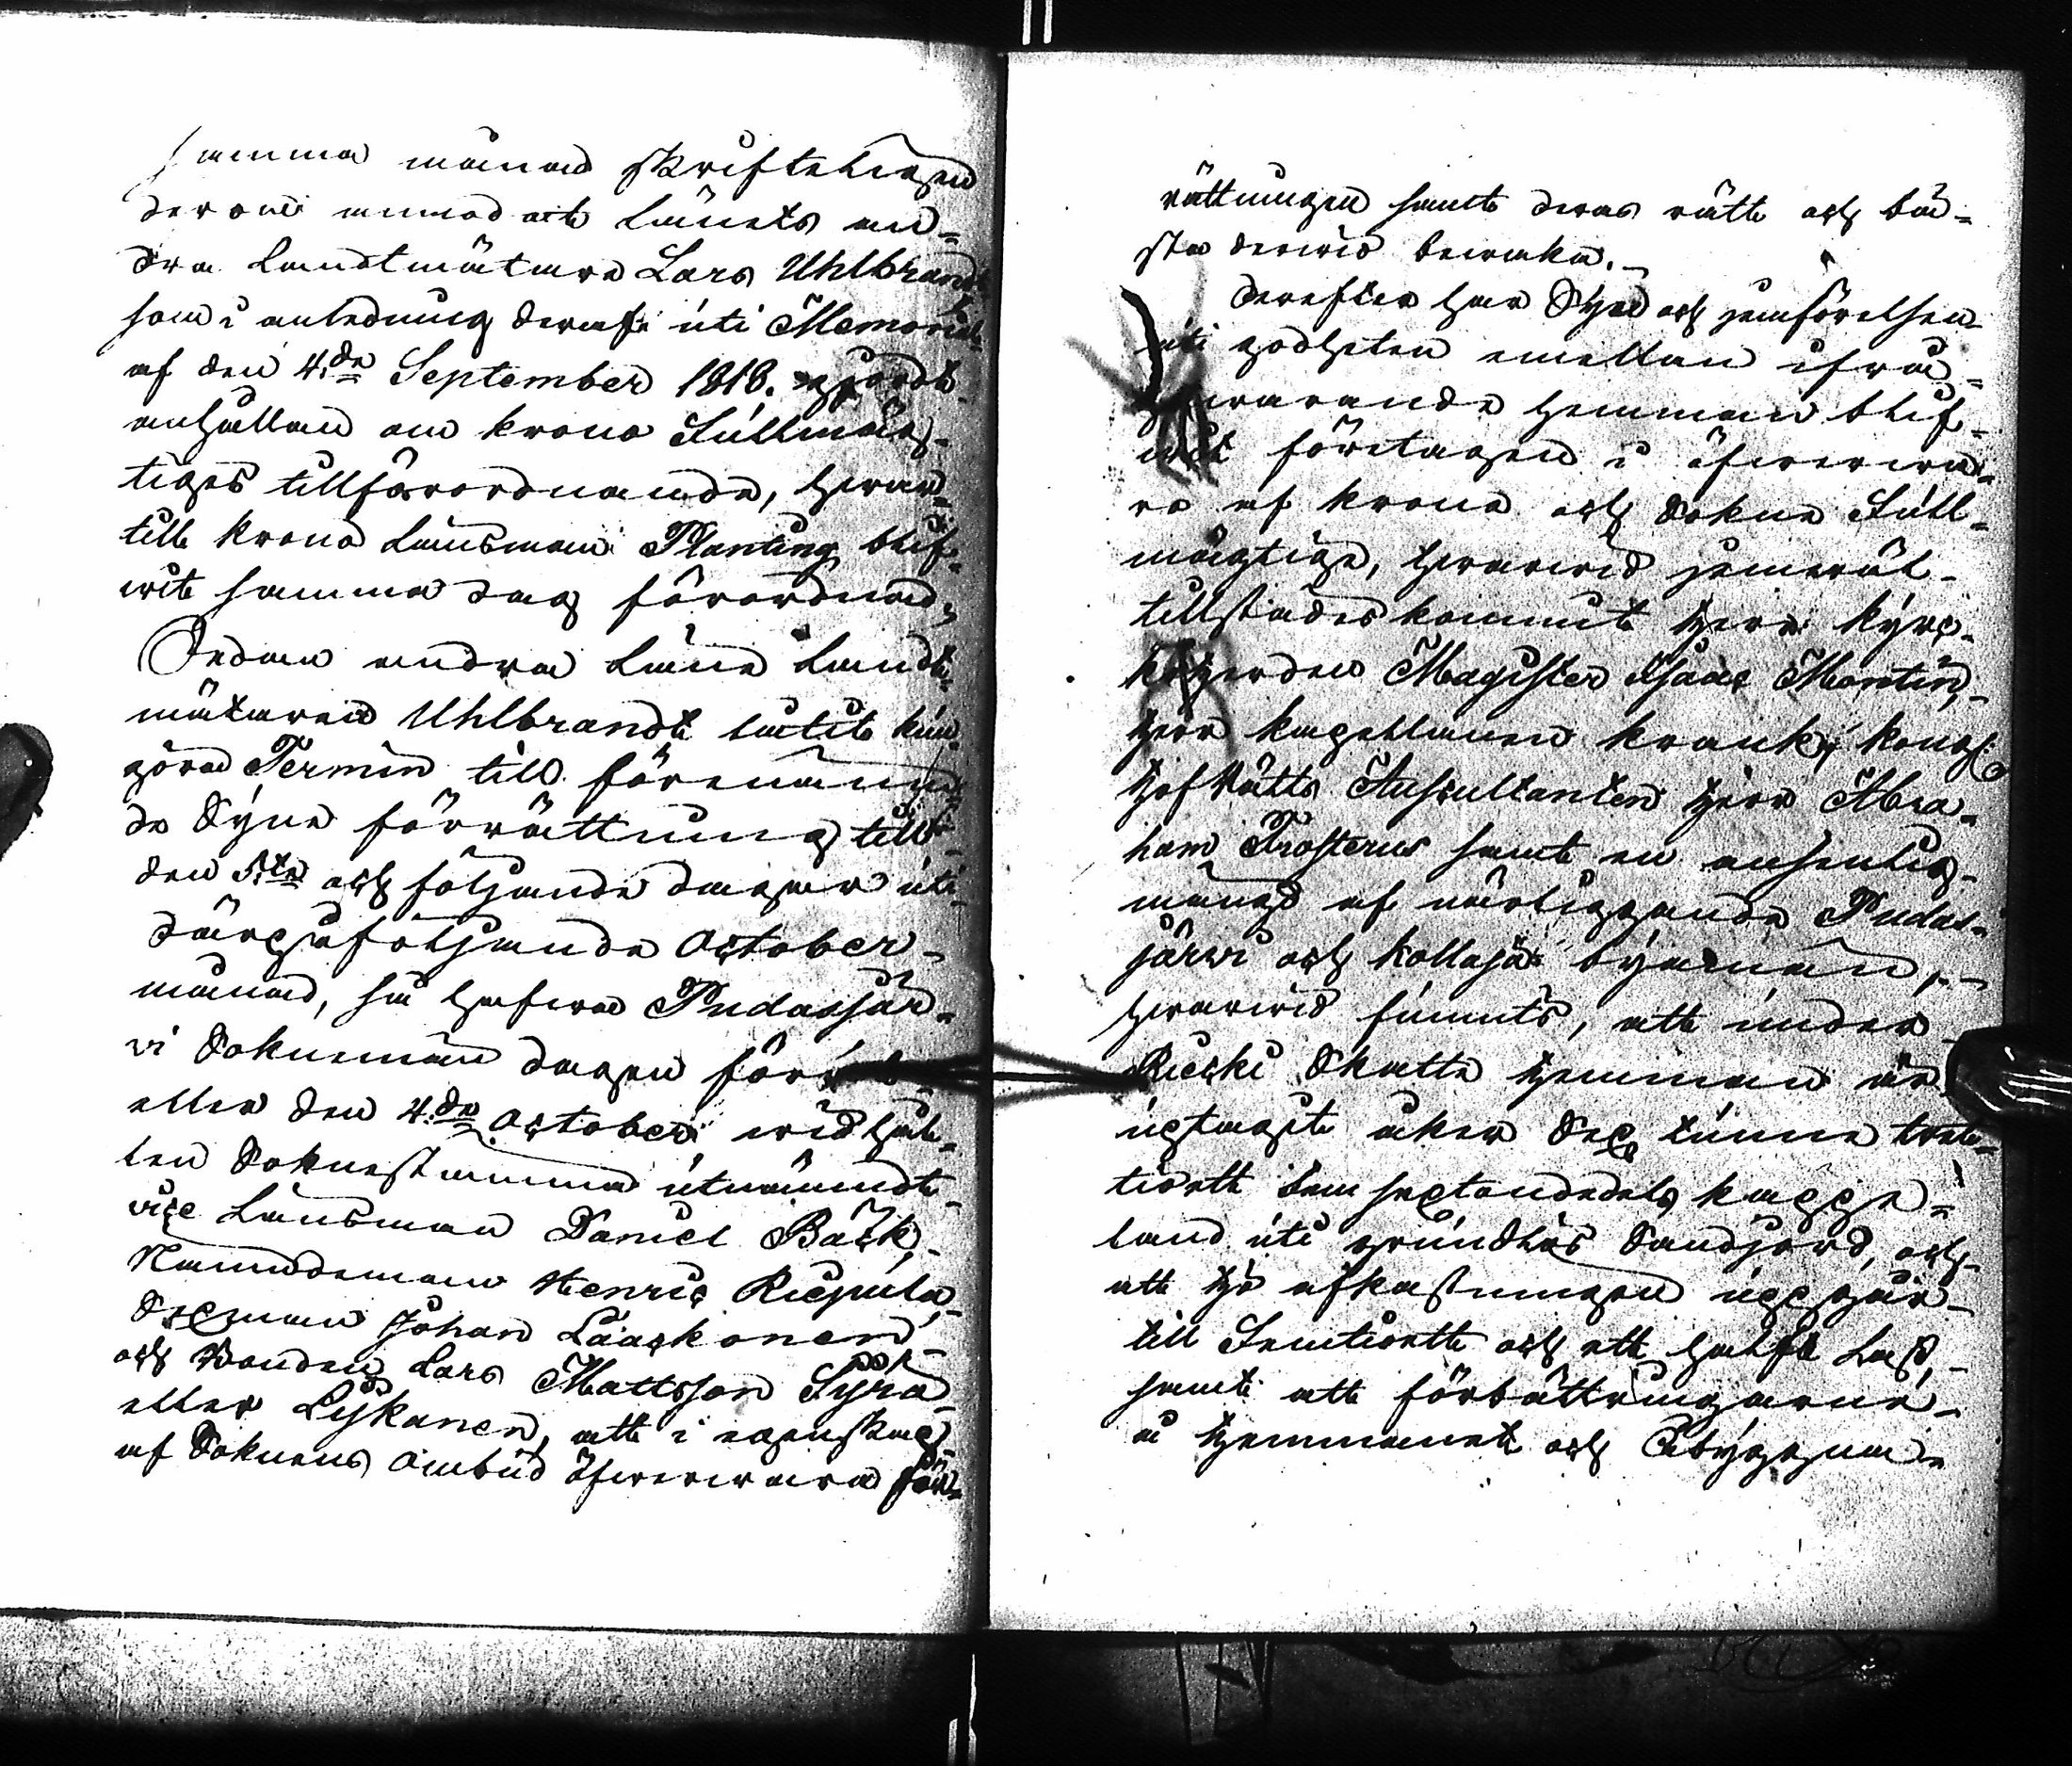 samma månad skrifteligen
derom anmodat Länets an-
dra Landtmätare Lars Uhlbrandt
som i anledning deraf uti Memorial
af den 4:de September 1818. gjordt
anhållan om Krono Fullmäg-
tiges tillförordnande, hwar-
till Krono Länsman Planting blif-
wit samma dag förordnad,
Sedan andra Läne Landt-
mätaren Uhlbrandt låtit kun-
göra Termin till förenämn-
de Syne förrättning till
den 5:te och följande dagar uti
därpåföljande October
månad, så hafwa Pudasjär-
wi Sokneman dagen förut
eller den 4:de October widhål-
len Soknestämma utnämndt
vice Länsman Daniel Bäck,
Nämndeman Henric Riepula,
Sexman Johan Lääckonen
och Bonden Lars Mattsson Syrä
eller Lyskanen, att i egenskap
af Soknens Ombud öfwerwara för-
rättningen samt deras rätt och bä-
sta derwid bewaka.
Derefter har Syn och jemförelsen
uti godheten emellan ifrå-
gawarande hemman blif-
wit företagen i öfwerwa-
ro af Krono och Sokne Full-
mägtige, hwarwid jemwäl
tillstädeskommit Herr Kyrc-
koherden Magister Isaac Montin,
Herr Kapellanen Kranck, Kongl:
Hof Rätts Auscultanten Herr Abra-
ham Frosterus samt en ansenlig
mängd af närliggande Pudas-
järwi och Kollaja byamän,
hwarwid funnits, att under
Riecki Skatte Hemman är
uptagit åker Sex tunne trett-
tiott fem sextondedels kappe-
land uti grundlös Sandjord, och
att hö afkastningen uppgår
till Femtiott och ett halft Lass,
samt att förbättringarne
å Hemmanet och Åbyggna-